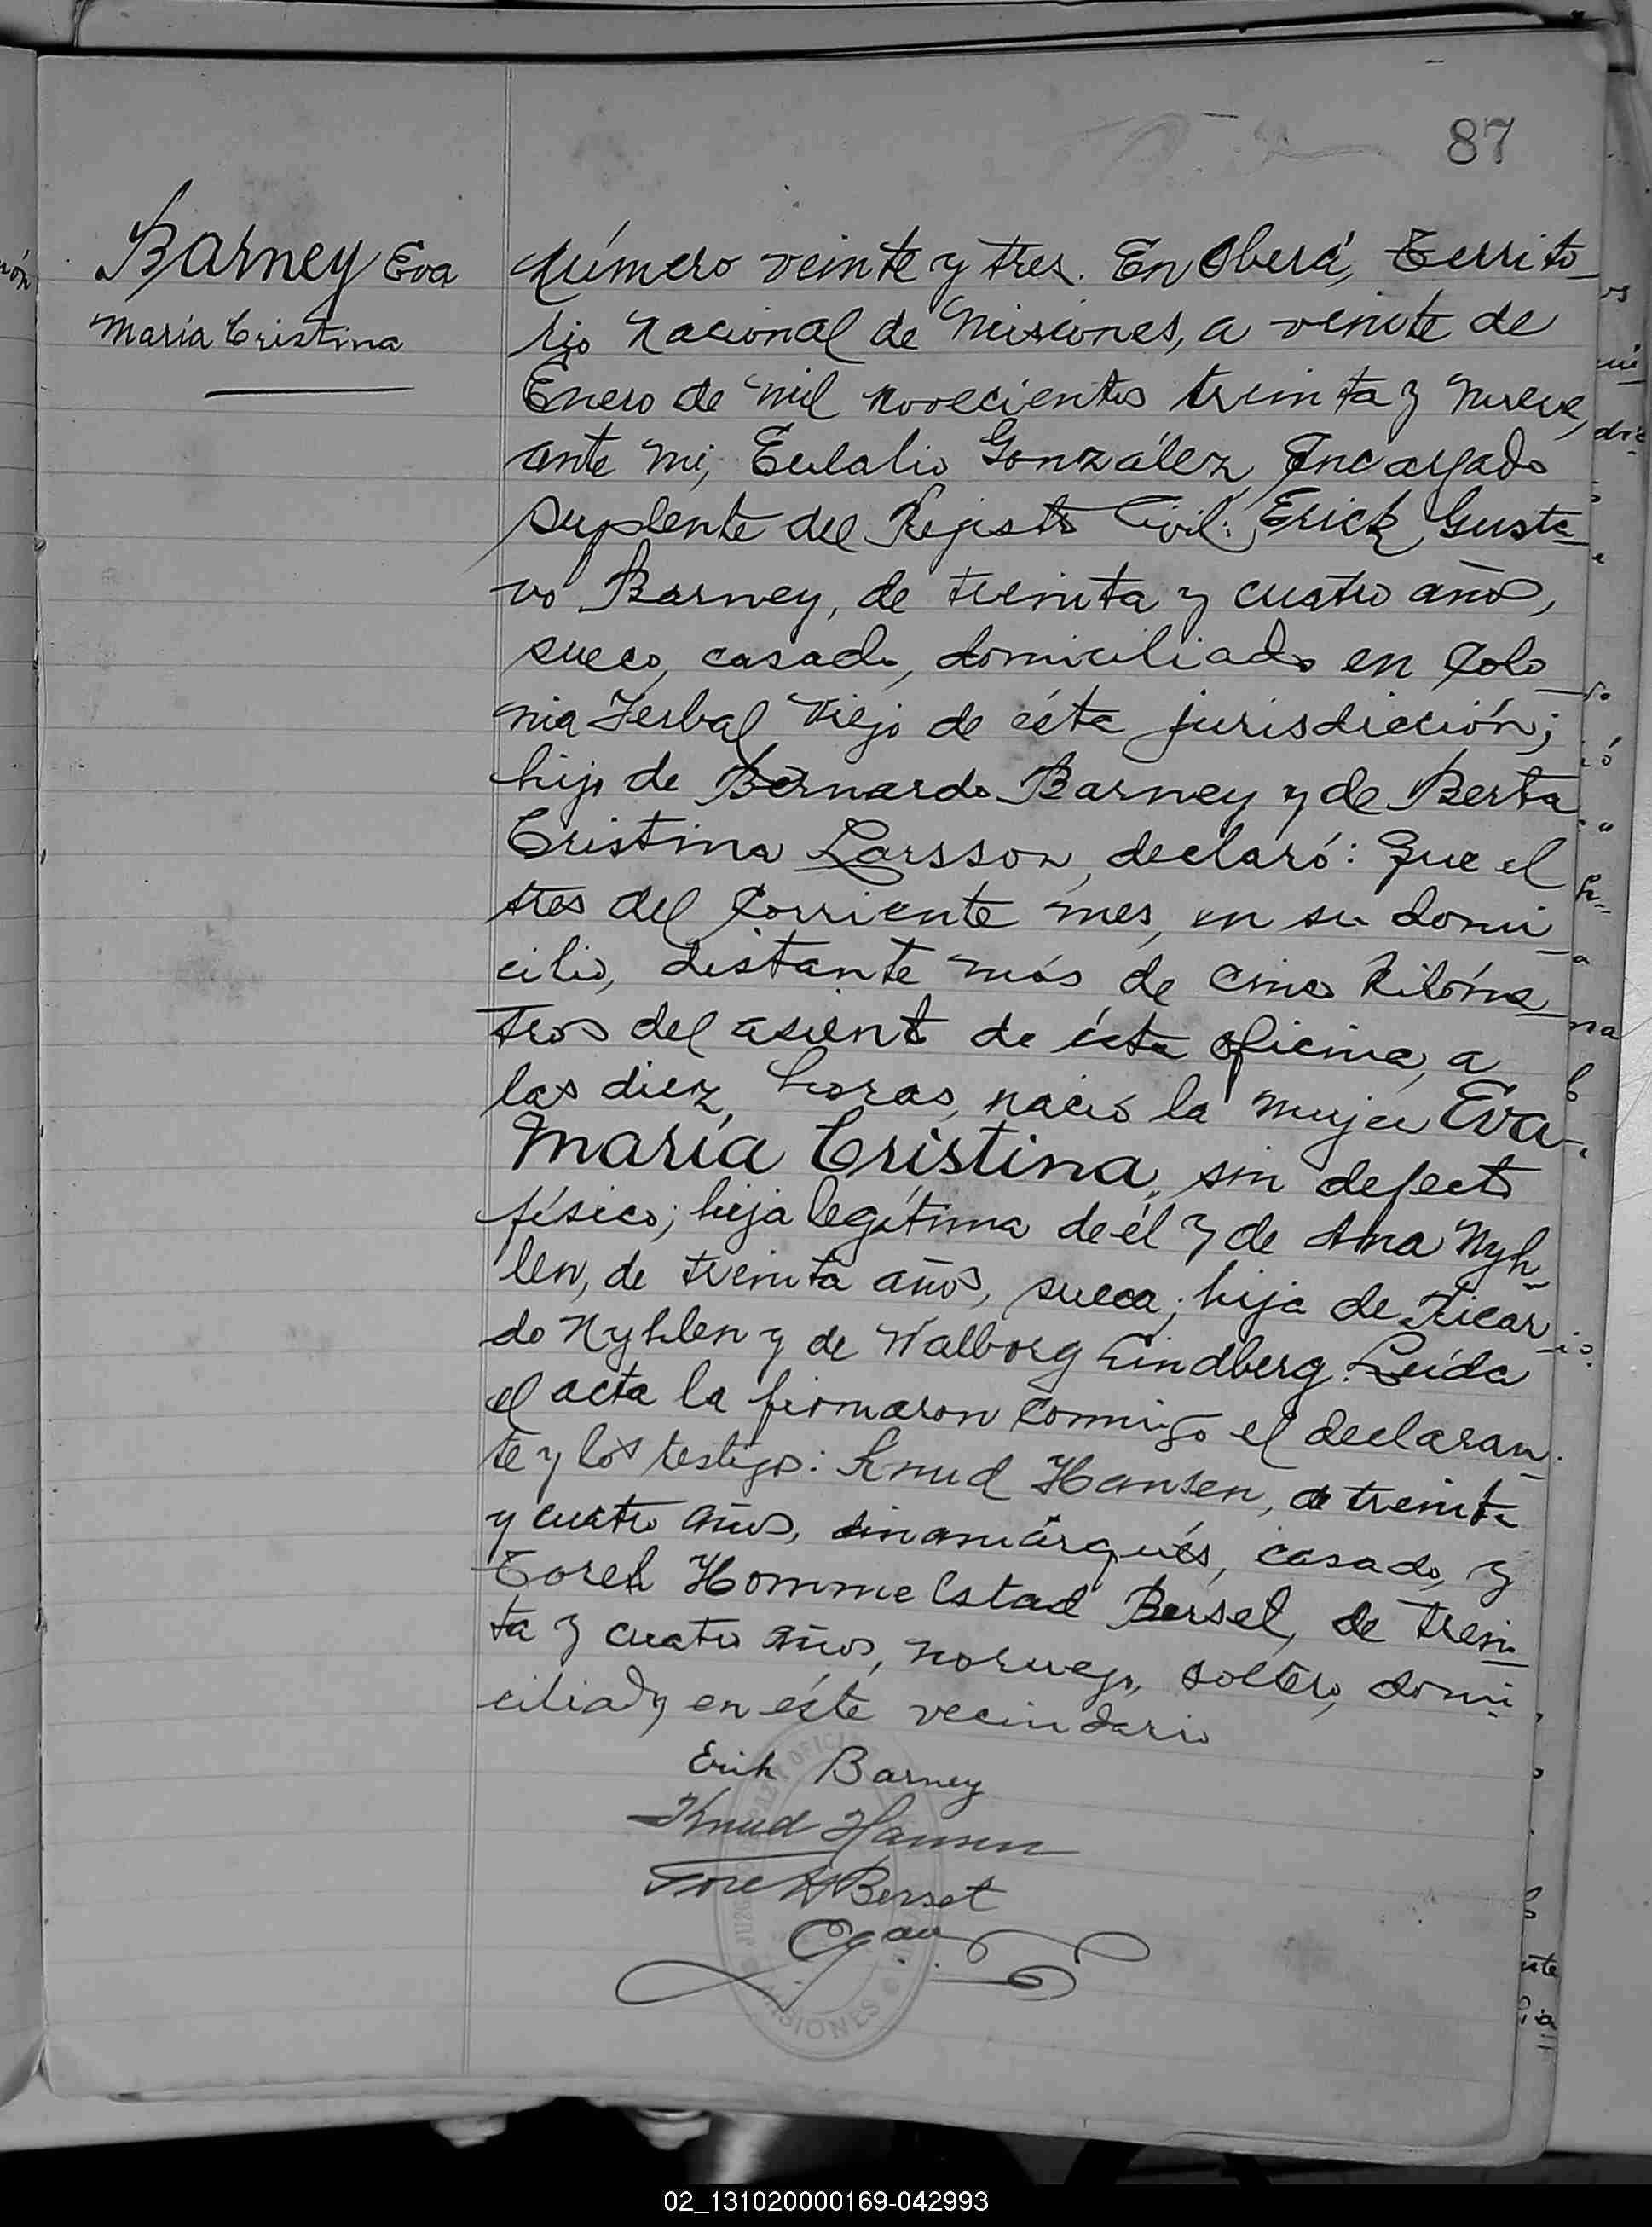 87
Barney Eva
María Cristina
Número veinte y tres. En Oberá, Territo-
rio Nacional de Misiones, a veinte de
Enero de mil novecientos treinta y nueve,
ante mi, Eulalio González, Encargado
Suplente del Registro Civil: Erick Gusta-
vo Barney, de treinta y cuatro años,
sueco, casado, domiciliado en Colo-
nia Yerbal Viejo de ésta jurisdicción;
hijo de Bernardo Barney y de Berta
Cristina Larsson, declaró: Que el
tres del corriente mes, en su domi-
cilio, distante más de cinco kilóme-
tros del asiento de ésta oficina, a
las diez horas, nació la mujer Eva
María Cristina, sin defecto
físico; hija legítima de él y de Ana Nyh-
len, de treinta años, sueca; hija de Ricar-
do Nyhlen y de Walborg Lindberg. Leída
el acta la firmaron conmigo el declaran-
te y los testigos: Knud Hansen, de treinta
y cuatro años, dinamárqués, casado, y
Toreh Hommelstad Berset, de trein-
ta y cuatro años, noruego, soltero, domi-
ciliados en éste vecindario
Erik Barney
Knud Hansen
Tore H Berset
MISIONES
02_131020000169-042993